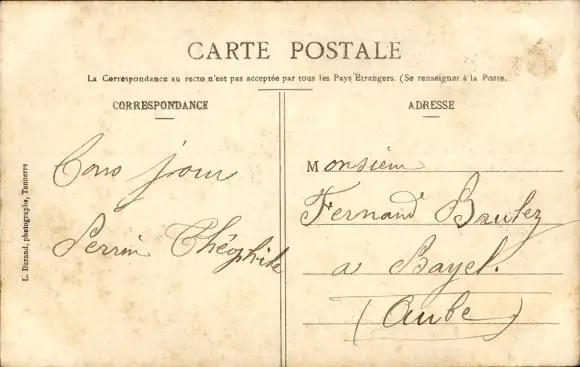 CARTE POSTALE
La Correspondance au recto n'est pas acceptée par tous les Pays Etrangers. (Se renseigner à la Poste.
CORRESPONDANCE
Bons jour
Perrin Théophile
ADRESSE
Monsieur
Fernand
à Bayel.
(Aube)
L. Durand, photographe, Tonnerre